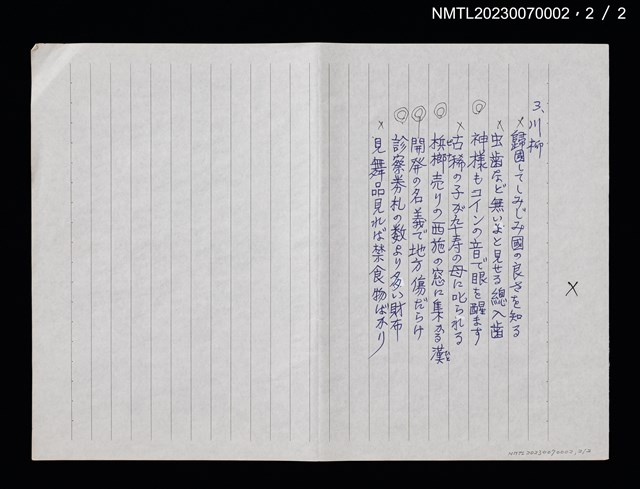 NMTL20230070002，2 / 2
3、川柳
× 歸国してしみじみ國の良さを知る
× 虫歯など無いよと見せる總入歯
◎ 神様もコインの音で眼を醒ます
× 古稀の子が卆寿の母に叱られる
◎ 梹榔売りの西施の窓に集かる漢
◎ 開発の名義で地方傷だらけ
◎ 診察券札の数より多い財布
× 見舞品見れば禁食物ばかり
×
NMTL20230070002, 2/2